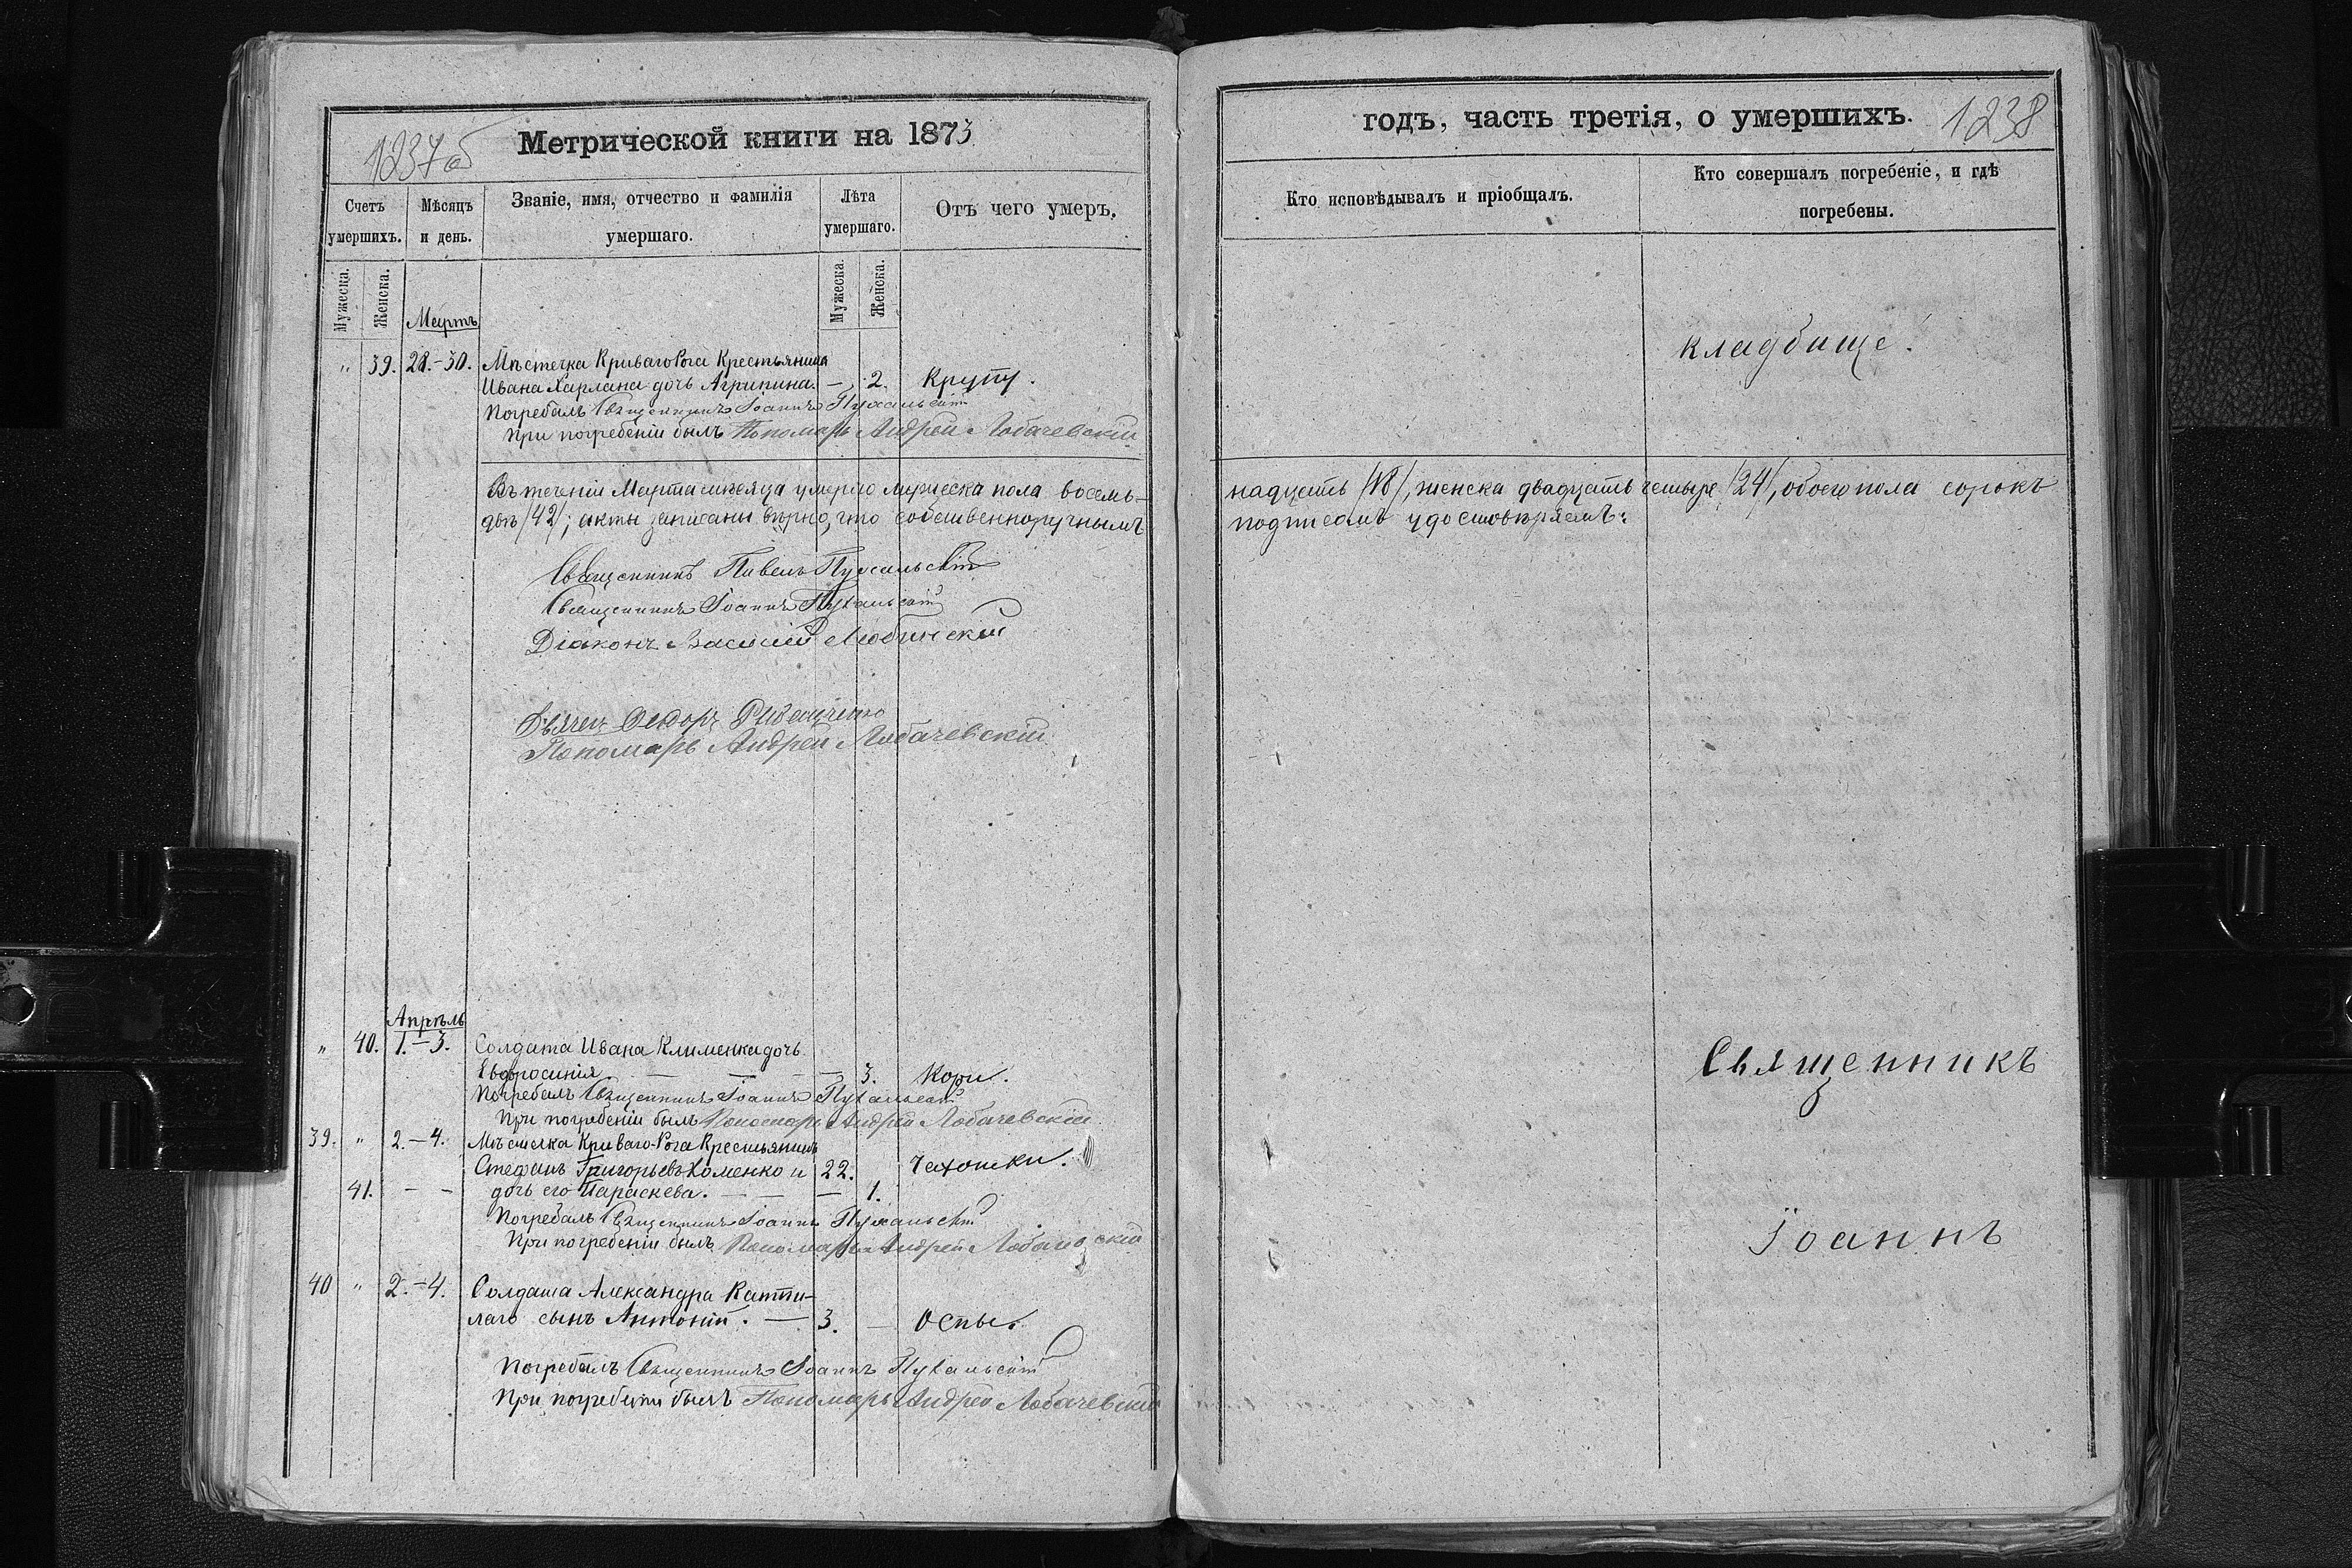 1237об
Метрической книги на 1873
Счетъ умершихъ.
Мѣсяцъ и день.
Званіе, имя, отчество и фамилія умершаго.
Лѣта умершаго.
Отъ чего умеръ.
Мужеска.
Женска.
Мужеска.
Женска.
Мартъ
" 39. 28.-30. Мѣстечка Криваго Рога Крестьянина
Ивана Харлана дочь Агрипина. — 2. Крупу.
Погребалъ Священникъ Іоаннъ Пухальскій
При погребеніи былъ Пономарь Андрей Лобачевскій
Въ теченіи Марта мѣсяца умерло мужеска пола восемь-
двѣ /42/; акты записаны вѣрно, что собственноручнымъ
Священникъ Павелъ Пухальскій
Священникъ Іоаннъ Пухальскій
Діаконъ Василій Любинскій
Дьячекъ Ѳедоръ
Пономарь Андрей Лобачевскій
Апрѣль
" 40. 1.-3. Солдата Ивана Клименка дочь
Евфросинія. — — — — 3. Кори.
Погребалъ Священникъ Іоаннъ Пухальскій
При погребеніи былъ Пономарь Андрей Лобачевскій
39. " 2.-4. Мѣстечка Криваго-Рога Крестьянинъ
Стефанъ Григорьевъ Хоменко и 22. Чахотки.
41. - - дочь его Параскева. — — — 1.
Погребалъ Священникъ Іоаннъ Пухальскій
При погребеніи былъ Пономарь Андрей Лобачевскій
40 " 2.-4. Солдата Александра
сынъ Антоній. — 3. — Оспы.
Погребалъ Священникъ Іоаннъ Пухальскій
При погребеніи былъ Пономарь Андрей Лобачевскій
годъ, часть третія, о умершихъ. 1238
Кто исповѣдывалъ и пріобщалъ.
Кто совершалъ погребеніе, и гдѣ
погребены.
кладбище.
надцать /18/, женска двадцать четыре /24/, обоего пола сорокъ
подписомъ удостовѣряемъ:
Священникъ
Іоаннъ